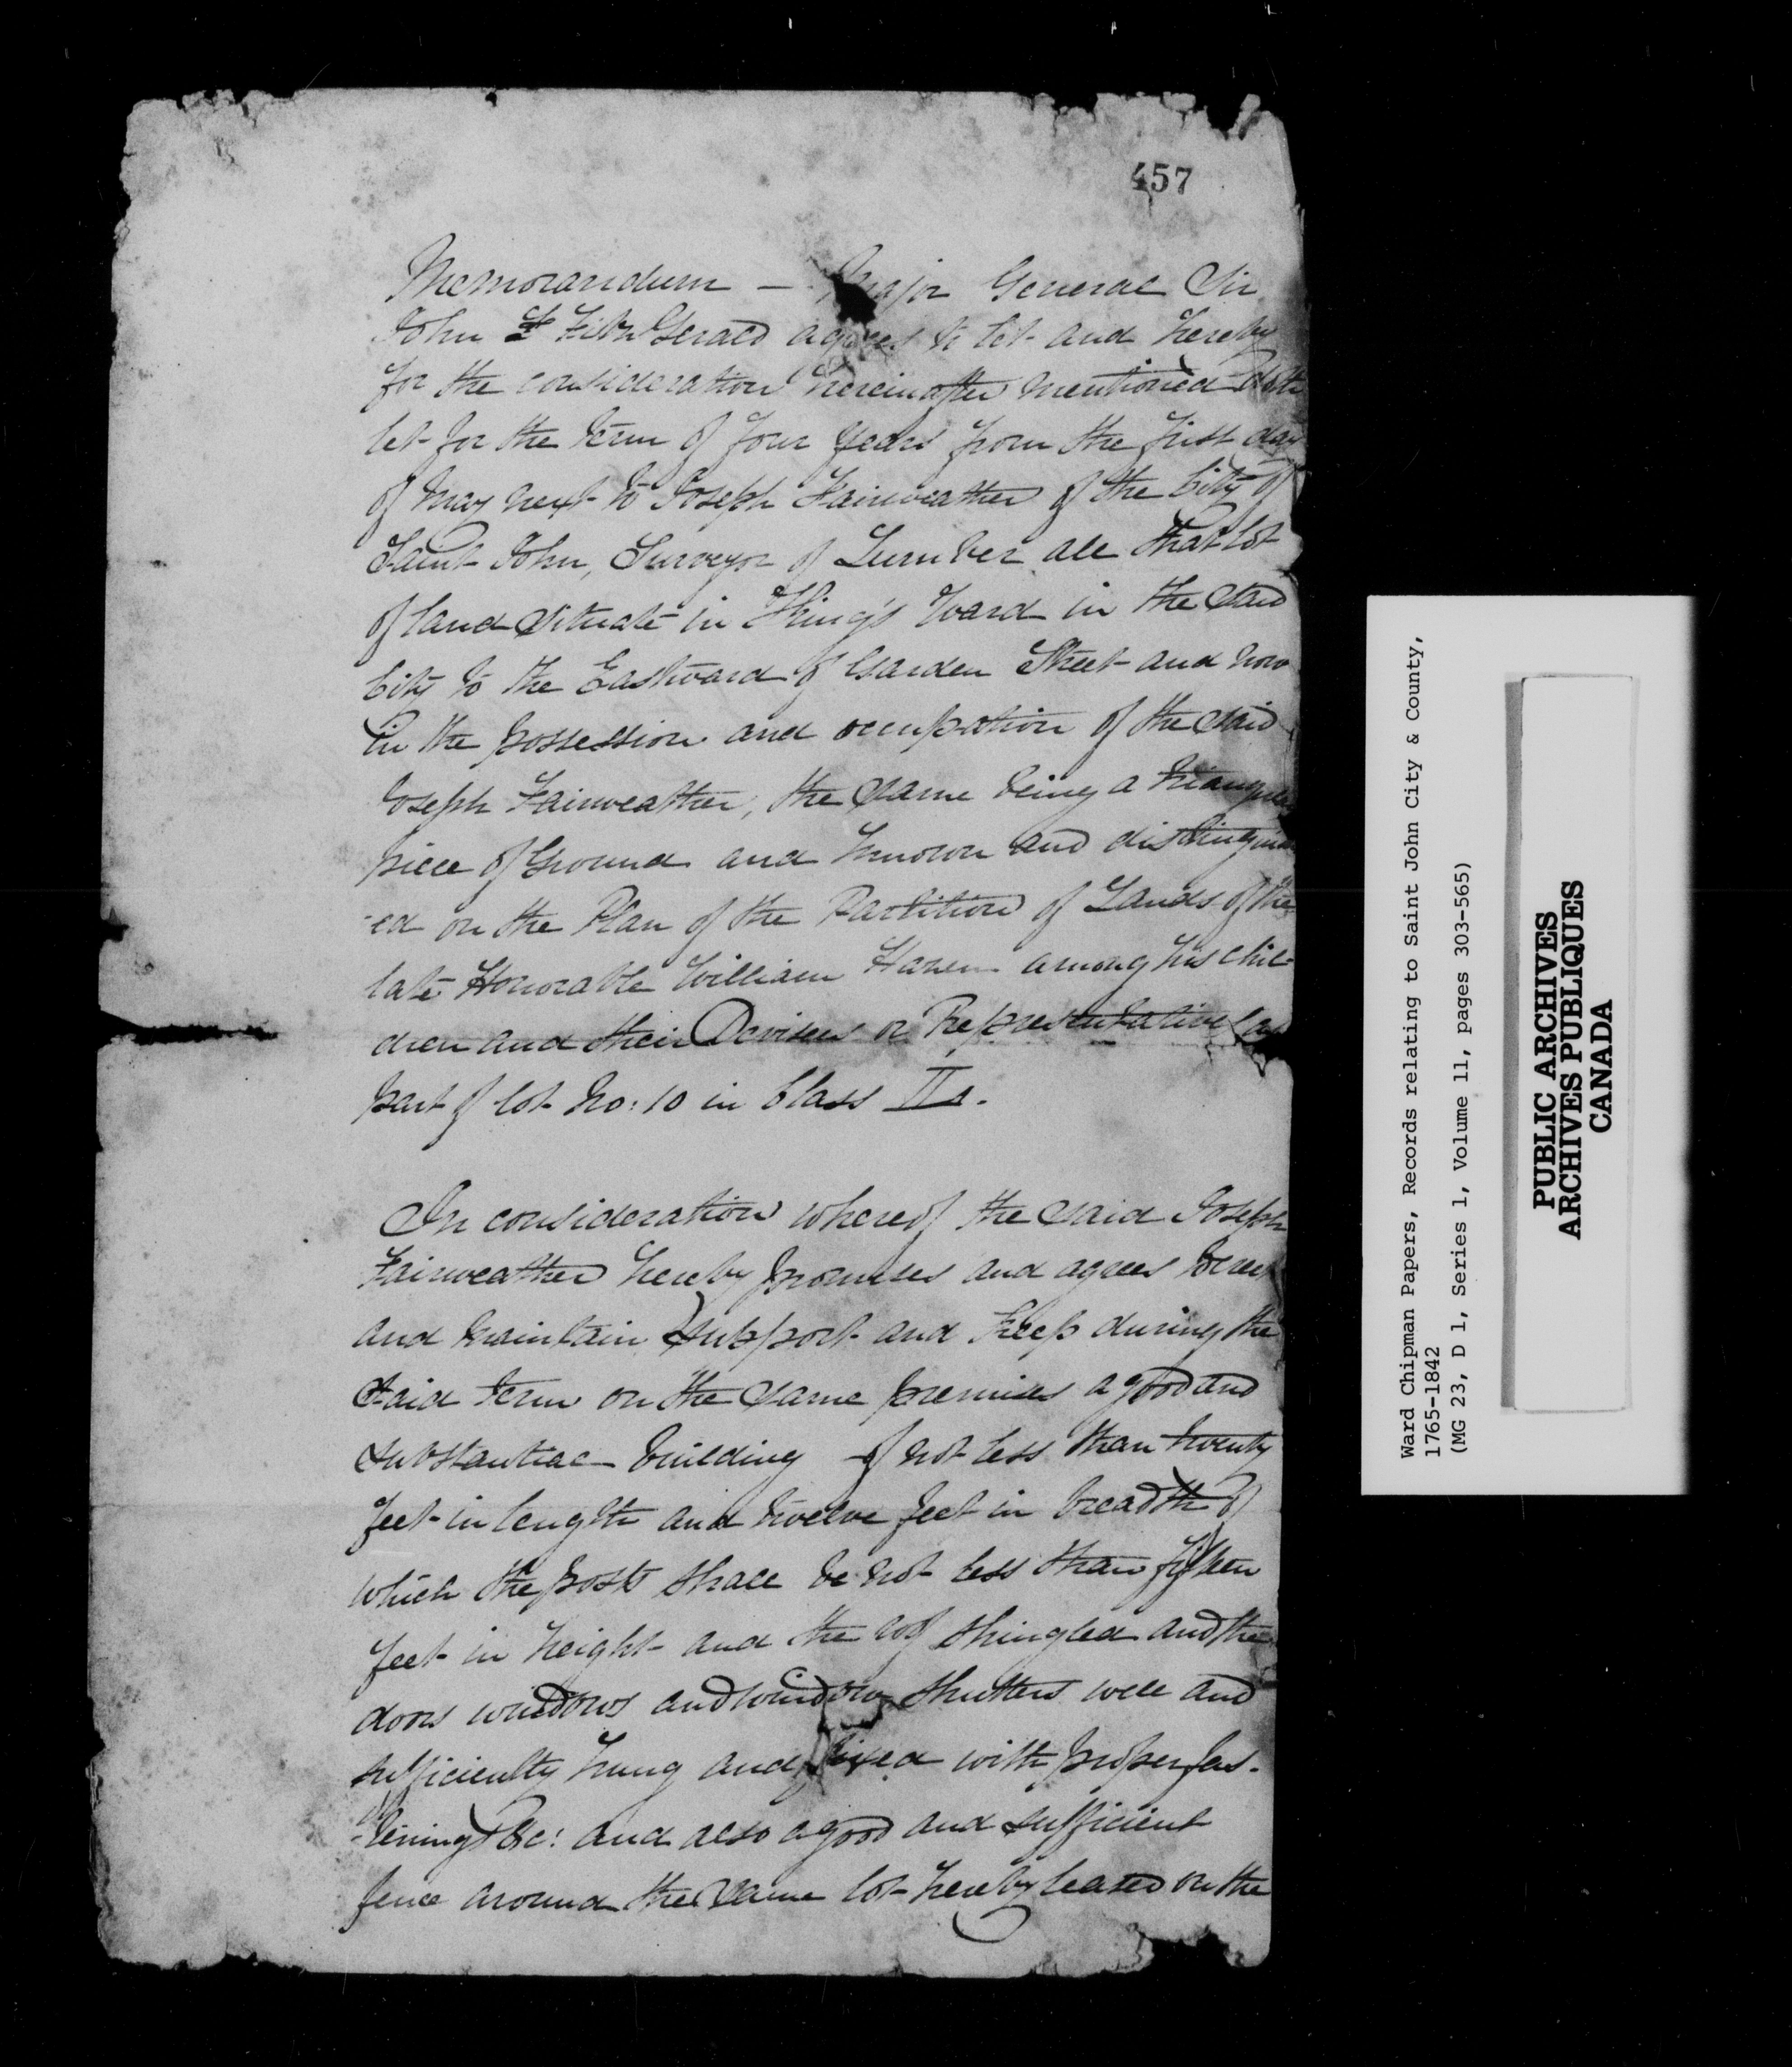 457
Memorandum — Major General Sir
John F FitzGerald agrees to let and hereby
for the consideration hereinafter mentioned doth
let for the term of four years from the first day
of May next to Joseph Fairweather of the City of
Saint John, Surveyor of Lumber all that lot
of land situate in King's Ward in the said
City to the Eastward of Garden Street and now
in the possession and occupation of the said
Joseph Fairweather, the same being a triangular
piece of Ground and known and distinguish
-ed on the Plan of the Partition of Lands of the
late Honorable William Hazen among his chil-
dren and their Devisees or Representatives as
part of lot No: 10 in Class II.
In consideration whereof the said Joseph
Fairweather hereby promises and agrees to erect
and maintain support and keep during the
said term on the same premises a good and
substantial building of not less than twenty
feet in length and twelve feet in breadth of
which the posts shall be not less than fifteen
feet in height and the roof shingled and the
doors windows and window shutters well and
sufficiently hung and fixed with proper fas-
-tenings &c: and also a good and sufficient
fence around the same lot hereby leased on the
Ward Chipman Papers, Records relating to Saint John City & County,
1765-1842
(MG 23, D 1, Series 1, Volume 11, pages 303-565)
PUBLIC ARCHIVES
ARCHIVES PUBLIQUES
CANADA